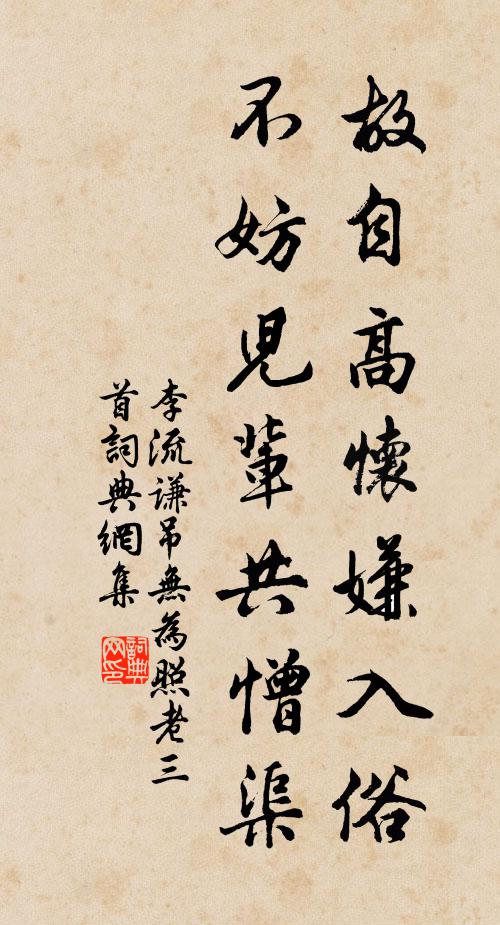 故自高懷嫌入俗
不妨兒輩共憎渠
李流謙吊無為照老三
首詞典網集
詞典
网印